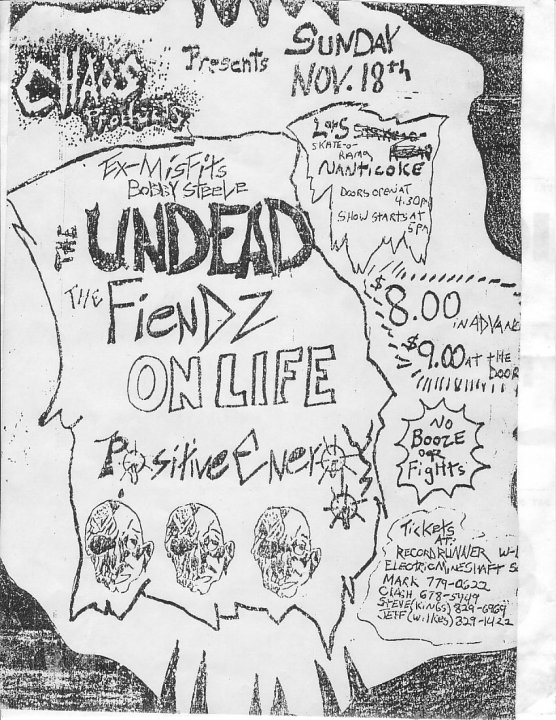 CHAOS
Products
Presents
SUNDAY
NOV. 18th
L&S
SKATE-O-
RAMA
NANTICOKE
DOORS OPEN AT
4:30PM
SHOW STARTS AT
5PM
Ex-Misfits
BOBBY STEELE
THE UNDEAD
THE FIENDZ
ON LIFE
Positive Energy
$8.00
IN ADVANC
$9.00 AT THE
DOOR
NO
BOOZE
OR
Fights
Tickets
AT:
RECORD RUNNER W-
ELECTRIC MINESHAFT S
MARK 779-0622
CLASH 678-5449
STEVE (KINGS) 829-6969
JEFF (Wilkes) 829-1422